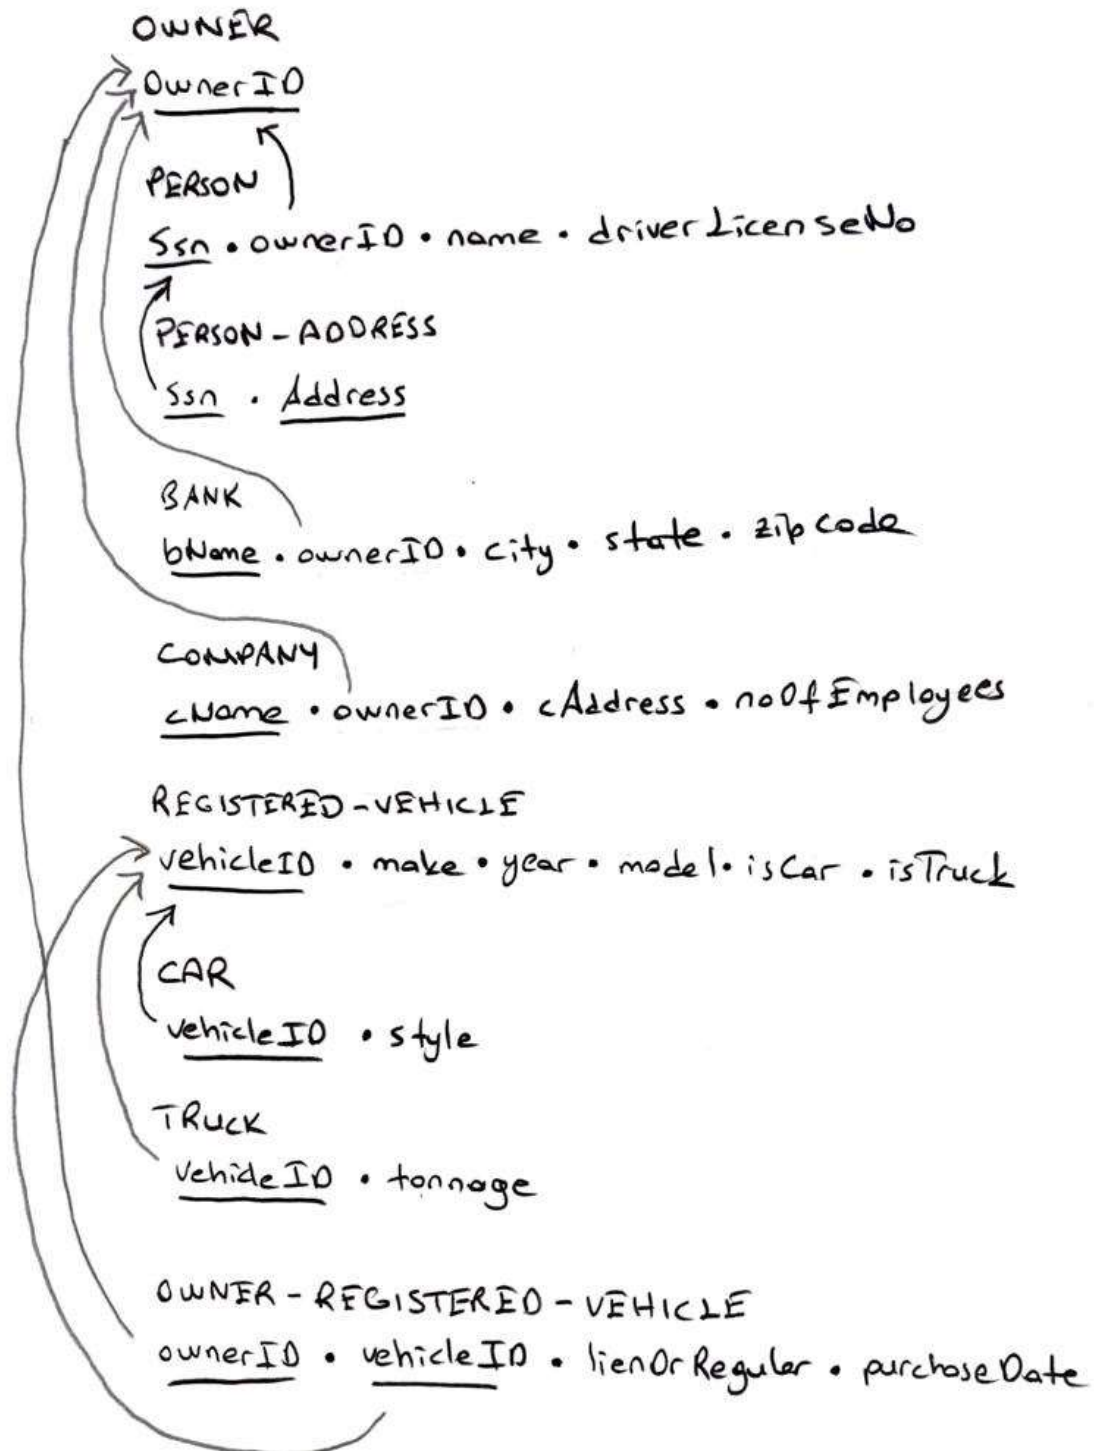 OWNER
OwnerID
PERSON
Ssn • ownerID • name • driverLicenseNo
PERSON-ADDRESS
Ssn • Address
BANK
bName • ownerID • city • state • zipcode
COMPANY
cName • ownerID • cAddress • noOfEmployees
REGISTERED-VEHICLE
vehicleID • make • year • model • isCar • isTruck
CAR
vehicleID • style
TRUCK
vehicleID • tonnage
OWNER-REGISTERED-VEHICLE
ownerID • vehicleID • lienOrRegular • purchaseDate